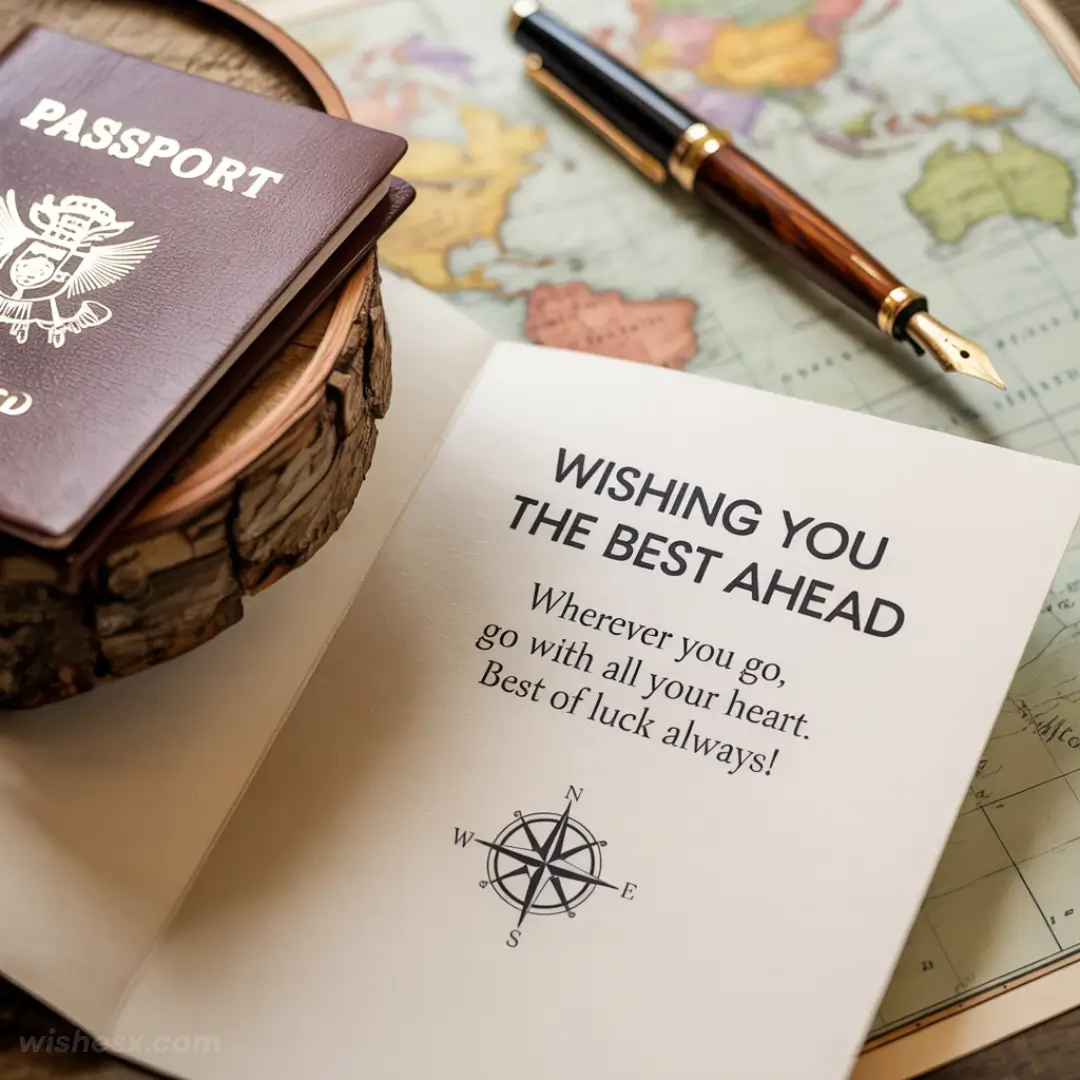 PASSPORT
WISHING YOU
THE BEST AHEAD
Wherever you go,
go with all your heart.
Best of luck always!
N
W
E
S
wishesx.com